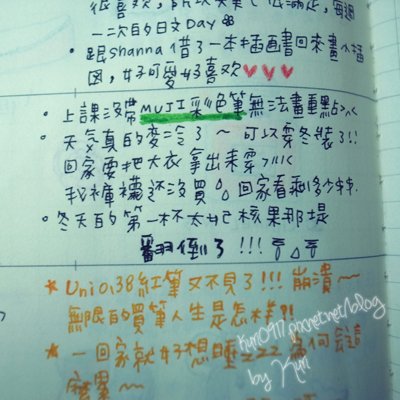 很喜歡
一二次百日文Day
• 跟Shanna借了一本插画書回來畫小插
図,好可愛好喜歡♥♥♥
• 上課沒帶MUJI彩色筆無法畫重點><
• 天气真的變冷了~可以穿冬裝了!!
回家要把大衣拿出來穿
我褲襪还沒買 回家看剩多少
• 冬天的第一杯太妃核果那堤
翻倒了!!!
★Uni0.38紅筆又不見了!!! 崩潰~~
無限的買筆人生是怎样?!
★一回家就好想睡zzz 為何
疲累~~
Kuri0917.pixnet.net/blog
by Kuri